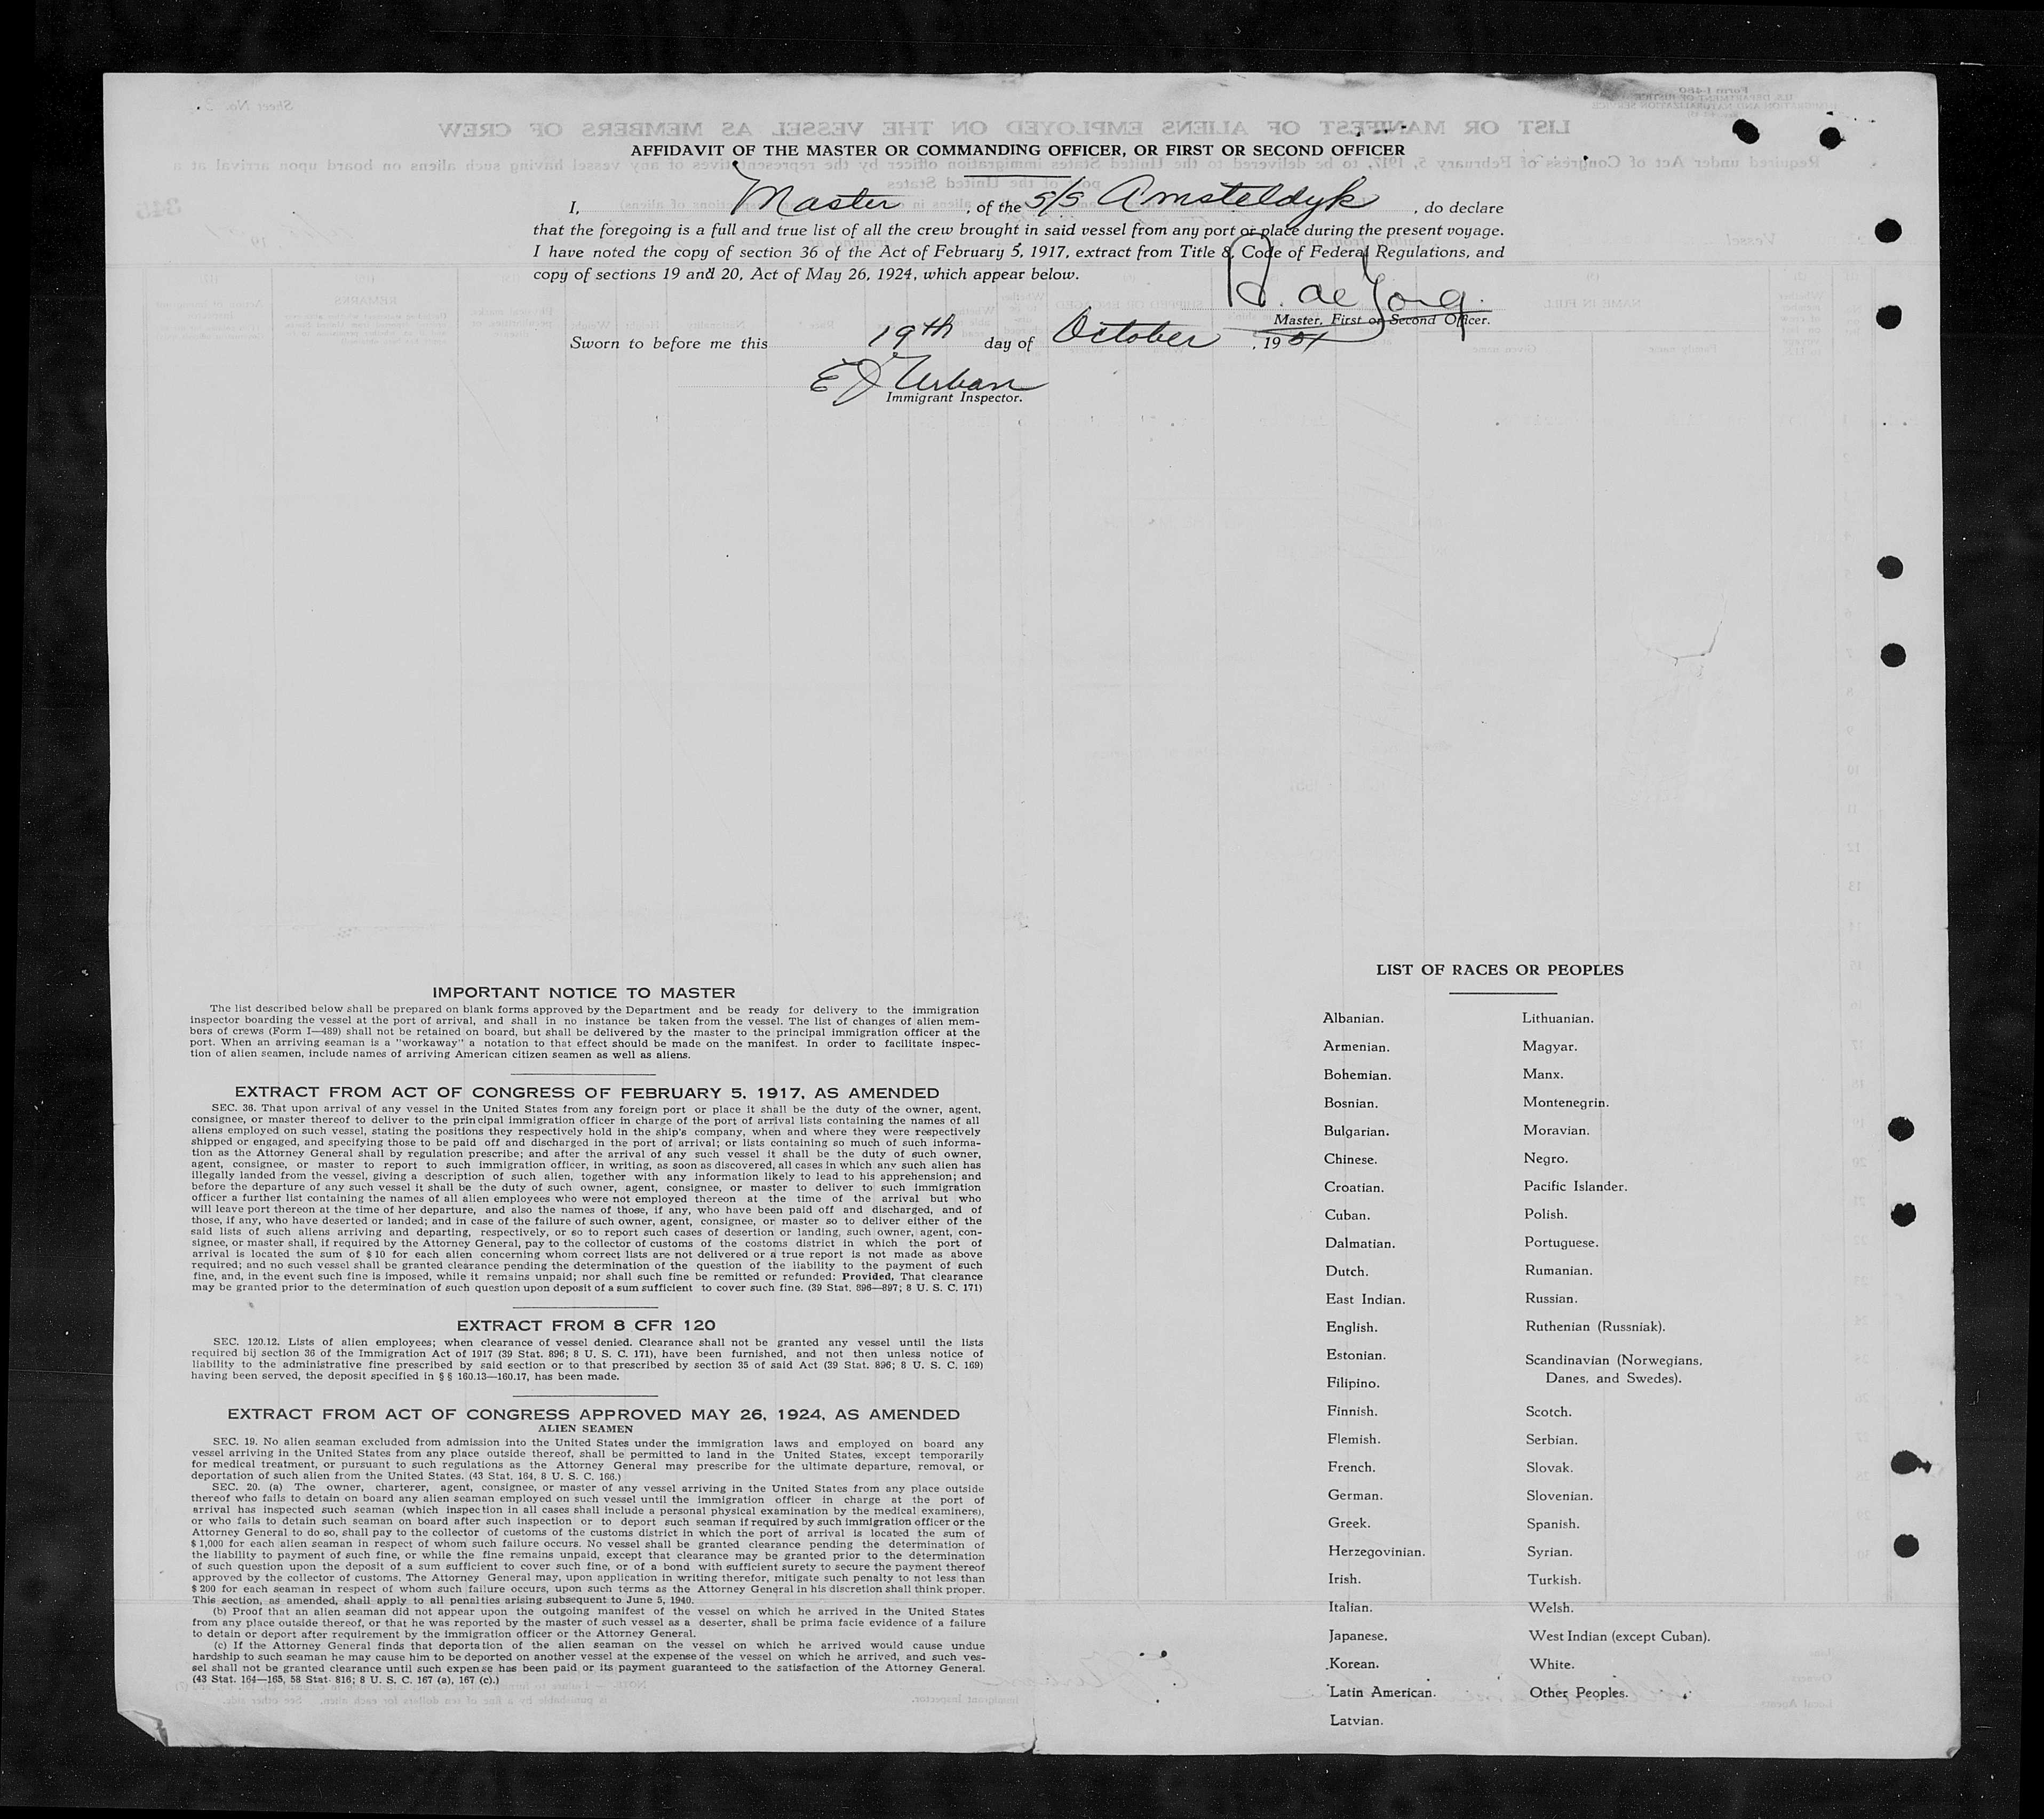 AFFIDAVIT OF THE MASTER OR COMMANDING OFFICER, OR FIRST OR SECOND OFFICER
I, Master, of the S/S Amsteldyk, do declare
that the foregoing is a full and true list of all the crew brought in said vessel from any port or place during the present voyage.
I have noted the copy of section 36 of the Act of February 5, 1917, extract from Title 8, Code of Federal Regulations, and
copy of sections 19 and 20, Act of May 26, 1924, which appear below.
A. de Jong.
Master, First or Second Officer.
Sworn to before me this 19th day of October, 1951
E J Urban
Immigrant Inspector.
IMPORTANT NOTICE TO MASTER
The list described below shall be prepared on blank forms approved by the Department and be ready for delivery to the immigration
inspector boarding the vessel at the port of arrival, and shall in no instance be taken from the vessel. The list of changes of alien mem-
bers of crews (Form I—489) shall not be retained on board, but shall be delivered by the master to the principal immigration officer at the
port. When an arriving seaman is a "workaway" a notation to that effect should be made on the manifest. In order to facilitate inspec-
tion of alien seamen, include names of arriving American citizen seamen as well as aliens.
EXTRACT FROM ACT OF CONGRESS OF FEBRUARY 5, 1917, AS AMENDED
SEC. 36. That upon arrival of any vessel in the United States from any foreign port or place it shall be the duty of the owner, agent,
consignee, or master thereof to deliver to the principal immigration officer in charge of the port of arrival lists containing the names of all
aliens employed on such vessel, stating the positions they respectively hold in the ship's company, when and where they were respectively
shipped or engaged, and specifying those to be paid off and discharged in the port of arrival; or lists containing so much of such informa-
tion as the Attorney General shall by regulation prescribe; and after the arrival of any such vessel it shall be the duty of such owner,
agent, consignee, or master to report to such immigration officer, in writing, as soon as discovered, all cases in which any such alien has
illegally landed from the vessel, giving a description of such alien, together with any information likely to lead to his apprehension; and
before the departure of any such vessel it shall be the duty of such owner, agent, consignee, or master to deliver to such immigration
officer a further list containing the names of all alien employees who were not employed thereon at the time of the arrival but who
will leave port thereon at the time of her departure, and also the names of those, if any, who have been paid off and discharged, and of
those, if any, who have deserted or landed; and in case of the failure of such owner, agent, consignee, or master so to deliver either of the
said lists of such aliens arriving and departing, respectively, or so to report such cases of desertion or landing, such owner, agent, con-
signee, or master shall, if required by the Attorney General, pay to the collector of customs of the costoms district in which the port of
arrival is located the sum of $10 for each alien concerning whom correct lists are not delivered or a true report is not made as above
required; and no such vessel shall be granted clearance pending the determination of the question of the liability to the payment of such
fine, and, in the event such fine is imposed, while it remains unpaid; nor shall such fine be remitted or refunded: Provided, That clearance
may be granted prior to the determination of such question upon deposit of a sum sufficient to cover such fine. (39 Stat. 896—897; 8 U. S. C. 171)
EXTRACT FROM 8 CFR 120
SEC. 120.12. Lists of alien employees; when clearance of vessel denied. Clearance shall not be granted any vessel until the lists
required bij section 36 of the Immigration Act of 1917 (39 Stat. 896; 8 U. S. C. 171), have been furnished, and not then unless notice of
liability to the administrative fine prescribed by said section or to that prescribed by section 35 of said Act (39 Stat. 896; 8 U. S. C. 169)
having been served, the deposit specified in § § 160.13—160.17, has been made.
EXTRACT FROM ACT OF CONGRESS APPROVED MAY 26, 1924, AS AMENDED
ALIEN SEAMEN
SEC. 19. No alien seaman excluded from admission into the United States under the immigration laws and employed on board any
vessel arriving in the United States from any place outside thereof, shall be permitted to land in the United States, except temporarily
for medical treatment, or pursuant to such regulations as the Attorney General may prescribe for the ultimate departure, removal, or
deportation of such alien from the United States. (43 Stat. 164, 8 U. S. C. 166.)
SEC. 20. (a) The owner, charterer, agent, consignee, or master of any vessel arriving in the United States from any place outside
thereof who fails to detain on board any alien seaman employed on such vessel until the immigration officer in charge at the port of
arrival has inspected such seaman (which inspection in all cases shall include a personal physical examination by the medical examiners),
or who fails to detain such seaman on board after such inspection or to deport such seaman if required by such immigration officer or the
Attorney General to do so, shall pay to the collector of customs of the customs district in which the port of arrival is located the sum of
$ 1,000 for each alien seaman in respect of whom such failure occurs. No vessel shall be granted clearance pending the determination of
the liability to payment of such fine, or while the fine remains unpaid, except that clearance may be granted prior to the determination
of such question upon the deposit of a sum sufficient to cover such fine, or of a bond with sufficient surety to secure the payment thereof
approved by the collector of customs. The Attorney General may, upon application in writing therefor, mitigate such penalty to not less than
$ 200 for each seaman in respect of whom such failure occurs, upon such terms as the Attorney General in his discretion shall think proper.
This section, as amended, shall apply to all penalties arising subsequent to June 5, 1940.
(b) Proof that an alien seaman did not appear upon the outgoing manifest of the vessel on which he arrived in the United States
from any place outside thereof, or that he was reported by the master of such vessel as a deserter, shall be prima facie evidence of a failure
to detain or deport after requirement by the immigration officer or the Attorney General.
(c) If the Attorney General finds that deportation of the alien seaman on the vessel on which he arrived would cause undue
hardship to such seaman he may cause him to be deported on another vessel at the expense of the vessel on which he arrived, and such ves-
sel shall not be granted clearance until such expense has been paid or its payment guaranteed to the satisfaction of the Attorney General.
(43 Stat. 164—165, 58 Stat. 816; 8 U. S. C. 167 (a), 167 (c).)
LIST OF RACES OR PEOPLES
Albanian.
Armenian.
Bohemian.
Bosnian.
Bulgarian.
Chinese.
Croatian.
Cuban.
Dalmatian.
Dutch.
East Indian.
English.
Estonian.
Filipino.
Finnish.
Flemish.
French.
German.
Greek.
Herzegovinian.
Irish.
Italian.
Japanese.
Korean.
Latin American.
Latvian.
Lithuanian.
Magyar.
Manx.
Montenegrin.
Moravian.
Negro.
Pacific Islander.
Polish.
Portuguese.
Rumanian.
Russian.
Ruthenian (Russniak).
Scandinavian (Norwegians,
Danes, and Swedes).
Scotch.
Serbian.
Slovak.
Slovenian.
Spanish.
Syrian.
Turkish.
Welsh.
West Indian (except Cuban).
White.
Other Peoples.